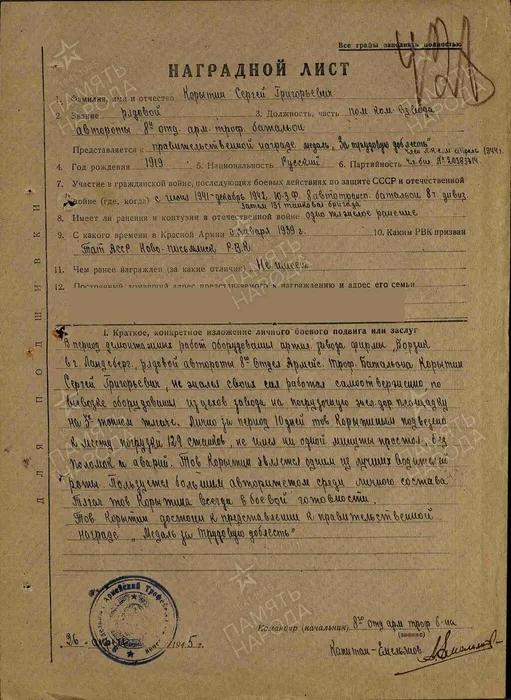 Все графы заполнять полностью
НАГРАДНОЙ ЛИСТ
1. Фамилия, имя и отчество Корытин Сергей Григорьевич
2. Звание рядовой 3. Должность, часть пом. ком. взвода
автороты 8го отд. арм. троф. батальон
Представляется к правительственной награде медаль „За трудовую доблесть"
4. Год рождения 1919 5. Национальность Русский 6. Партийность
7. Участие в гражданской войне, последующих боевых действиях по защите СССР и отечественной
войне (где, когда) с июня 1941 - декабрь 1942 Ю.З.Ф. 8 автотросб. батальон 81 дивиз.
Затем 131 танковая бригада
8. Имеет ли ранения и контузии в отечественной войне одно тяжелое ранение
9. С какого времени в Красной Армии января 1939 г. 10. Каким РВК призван
Тат АССР Ново-письмянск РВК
11. Чем ранее награжден (за какие отличия) Не имеет
12. Постоянный домашний адрес представляемого к награждению и адрес его семьи
I. Краткое, конкретное изложение личного боевого подвига или заслуг
В период демонтажных работ оборудования завода фирмы
в г. Ландсберг, рядовой автороты 8го Отдел Армейс. Троф. Батальона Корытин
Сергей Григорьевич, не жалея своих сил работал самоотверженно, по
вывозке оборудования из цехов завода на погрузочную жел-дор площадку
на тягаче. Лично за период 10 дней тов Корытиным подвезено
к месту погрузки 129 станков, не имея ни одной минуты простоя, без
поломок и аварий. Тов Корытин является одним из лучших водителей
роты Пользуется большим авторитетом среди личного состава
Тягач тов Корытина всегда в боевой готовности
Тов. Корытин достоин к представлении к правительственной
награде „Медаль за трудовую доблесть"
ДЛЯ ПОДШИВКИ
Командир (начальник) 8го отд арм троф б-на
(звание)
26 1945 г.
Капитан Емельянов
ПАМЯТЬ НАРОДА